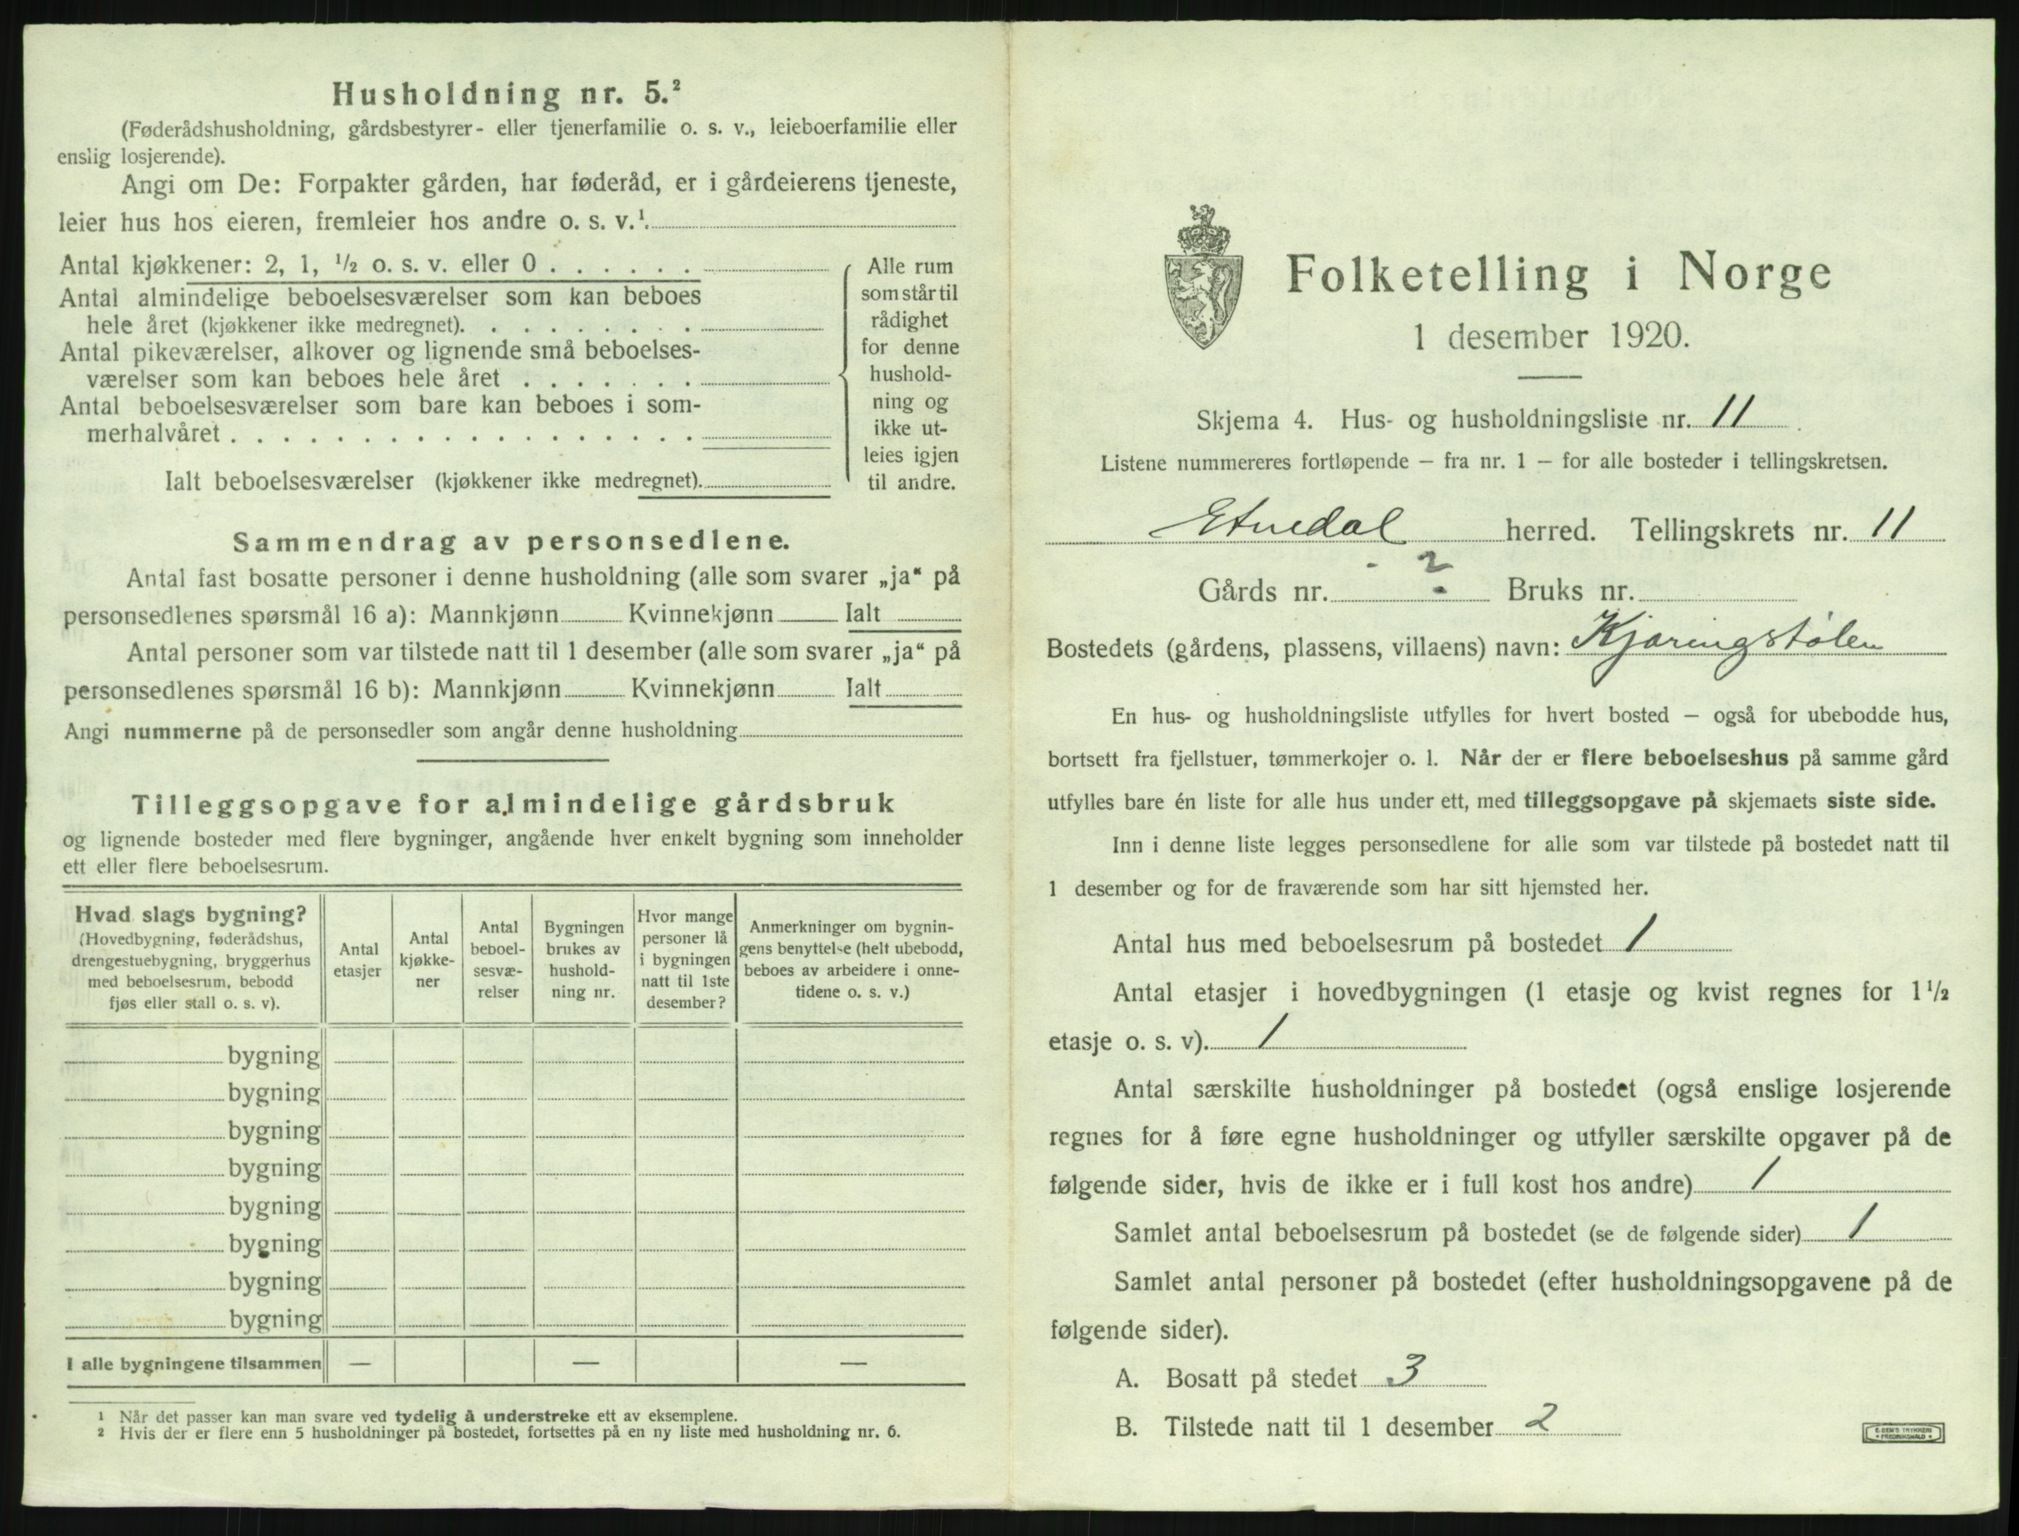 Husholdning nr. 5.²
(Føderådshusholdning, gårdsbestyrer- eller tjenerfamilie o. s. v., leieboerfamilie eller
enslig losjerende).
Angi om De: Forpakter gården, har føderåd, er i gårdeierens tjeneste,
leier hus hos eieren, fremleier hos andre o. s. v.¹.
Antal kjøkkener: 2, 1, ½ o. s. v. eller 0 . . . . . .
Antal almindelige beboelsesværelser som kan beboes
hele året (kjøkkener ikke medregnet). . . . . . . . .
Antal pikeværelser, alkover og lignende små beboelses-
værelser som kan beboes hele året . . . . . . .
Antal beboelsesværelser som bare kan beboes i som-
merhalvåret . . . . . . . . . . . . . . . . . .
Ialt beboelsesværelser (kjøkkener ikke medregnet).
Alle rum
som står til
rådighet
for denne
hushold-
ning og
ikke ut-
leies igjen
til andre.
Sammendrag av personsedlene.
Antal fast bosatte personer i denne husholdning (alle som svarer „ja“ på
personsedlenes spørsmål 16 a): Mannkjønn Kvinnekjønn Ialt
Antal personer som var tilstede natt til 1 desember (alle som svarer „ja“ på
personsedlenes spørsmål 16 b): Mannkjønn Kvinnekjønn Ialt
Angi nummerne på de personsedler som angår denne husholdning
Tilleggsopgave for almindelige gårdsbruk
og lignende bosteder med flere bygninger, angående hver enkelt bygning som inneholder
ett eller flere beboelsesrum.
Hvad slags bygning?
(Hovedbygning, føderådshus,
drengestuebygning, bryggerhus
med beboelsesrum, bebodd
fjøs eller stall o. s. v).
Antal
etasjer
Antal
kjøkke-
ner
Antal
beboel-
sesvæ-
relser
Bygningen
brukes av
hushold-
ning nr.
Hvor mange
personer lå
i bygningen
natt til 1ste
desember?
Anmerkninger om bygnin-
gens benyttelse (helt ubebodd,
beboes av arbeidere i onne-
tidene o. s. v.)
bygning
bygning
bygning
bygning
bygning
bygning
bygning
bygning
I alle bygningene tilsammen — — —
¹ Når det passer kan man svare ved tydelig å understreke ett av eksemplene.
² Hvis der er flere enn 5 husholdninger på bostedet, fortsettes på en ny liste med husholdning nr. 6.
Folketelling i Norge
1 desember 1920.
Skjema 4. Hus- og husholdningsliste nr. 11.
Listene nummereres fortløpende – fra nr. 1 – for alle bosteder i tellingskretsen.
Etnedal herred. Tellingskrets nr. 11
Gårds nr. ? Bruks nr.
Bostedets (gårdens, plassens, villaens) navn: Kjøringstølen
En hus- og husholdningsliste utfylles for hvert bosted – også for ubebodde hus,
bortsett fra fjellstuer, tømmerkojer o. l. Når der er flere beboelseshus på samme gård
utfylles bare én liste for alle hus under ett, med tilleggsopgave på skjemaets siste side.
Inn i denne liste legges personsedlene for alle som var tilstede på bostedet natt til
1 desember og for de fraværende som har sitt hjemsted her.
Antal hus med beboelsesrum på bostedet 1
Antal etasjer i hovedbygningen (1 etasje og kvist regnes for 1½
etasje o. s. v). 1
Antal særskilte husholdninger på bostedet (også enslige losjerende
regnes for å føre egne husholdninger og utfyller særskilte opgaver på de
følgende sider, hvis de ikke er i full kost hos andre) 1
Samlet antal beboelsesrum på bostedet (se de følgende sider) 1
Samlet antal personer på bostedet (efter husholdningsopgavene på de
følgende sider).
A. Bosatt på stedet 3
B. Tilstede natt til 1 desember 2